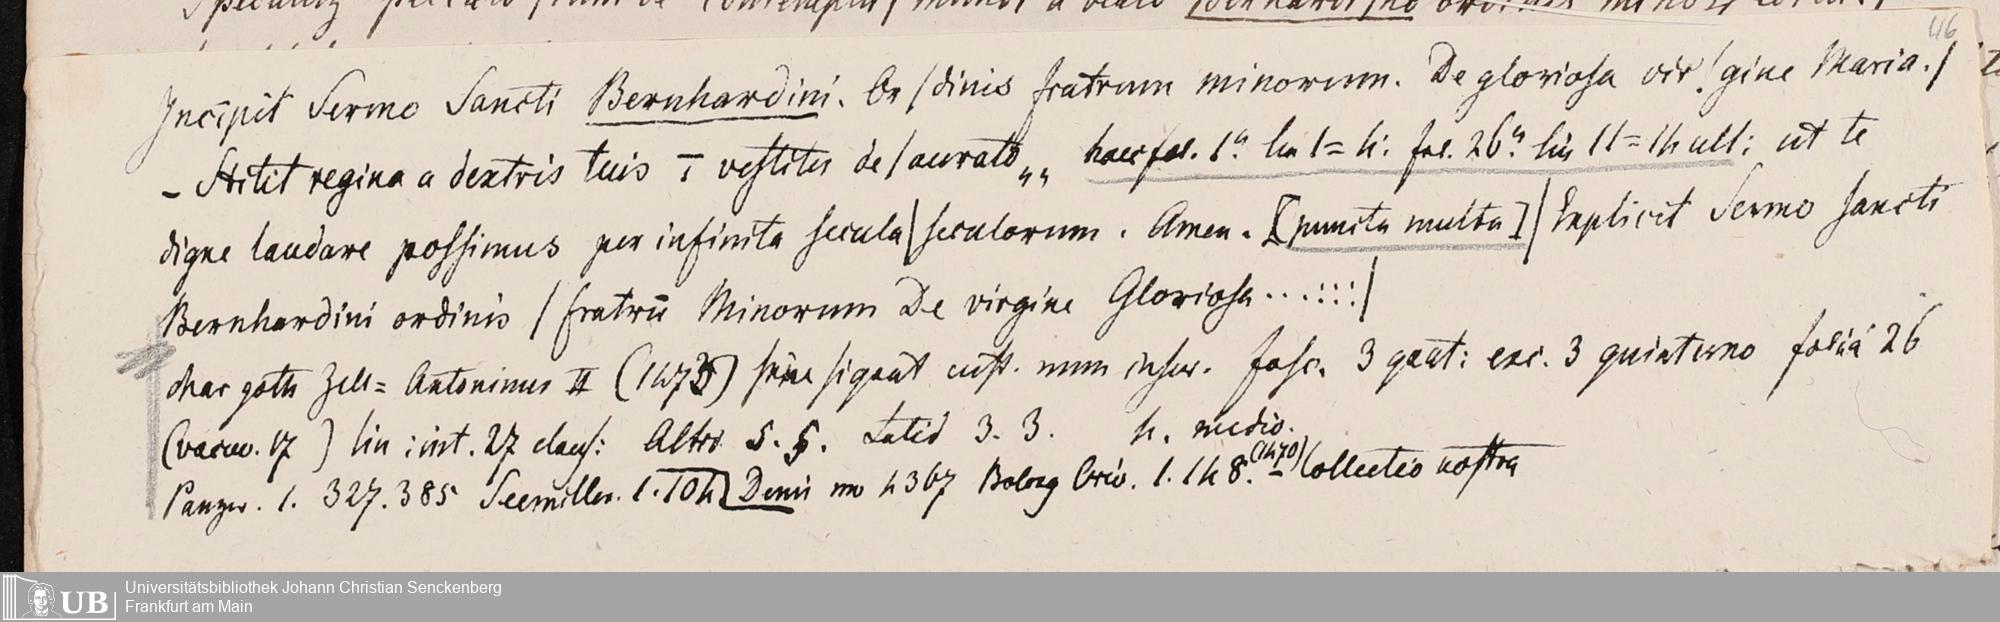 46
Incipit Sermo Sancti Bernhardini. Or/dinis fratrum minorum. De gloriosa vir/gine Maria./
- Astitit regina a dextris tuis ī vestitu de/aurato „ haec fol. 1a lin 1 = 4: fol. 26a lin 11 = 14 ult: ut te
digne laudare possimus per infinita secula/seculorum. Amen. [puncta multa]/Explicit Sermo sancti
Bernhardini ordinis / fratrū Minorum De virgine Gloriosa...:::/
char goth Zell = Antoninus II (1473) sine signat cust. num inser. fasc. 3 quat: exc. 3 quinterno folia 26
(vacuo. 17) lin: int. 27 Altid 5. 5. Latid 3. 3. 4. medio.
Panzer. 1. 327. 385 Seemiller. 1. 104 Denis no 4367 1. 148. (1470) - Collectio nostra
UB Universitätsbibliothek Johann Christian Senckenberg
Frankfurt am Main